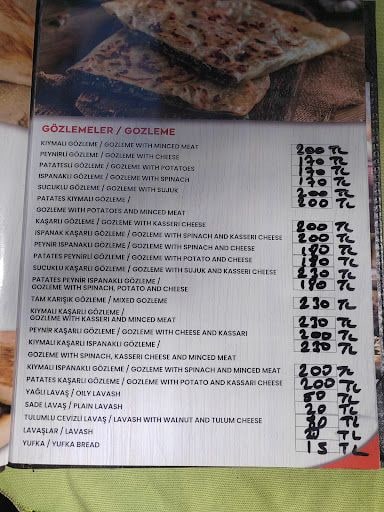 GÖZLEMELER / GOZLEME
KIYMALI GÖZLEME / GOZLEME WITH MINCED MEAT 200 TL
PEYNİRLİ GÖZLEME / GOZLEME WITH CHEESE 170 TL
PATATESLİ GÖZLEME / GOZLEME WITH POTATOES 170 TL
ISPANAKLI GÖZLEME / GOZLEME WITH SPINACH 170 TL
SUCUKLU GÖZLEME / GOZLEME WITH SUJUK 200 TL
PATATES KIYMALI GÖZLEME / 200 TL
GOZLEME WITH POTATOES AND MINCED MEAT
KAŞARLI GÖZLEME / GOZLEME WITH KASSERI CHEESE 200 TL
ISPANAK KAŞARLI GÖZLEME / GOZLEME WITH SPINACH AND KASSERI CHEESE 200 TL
PEYNİR ISPANAKLI GÖZLEME / GOZLEME WITH SPINACH AND CHEESE 180 TL
PATATES PEYNİRLİ GÖZLEME / GOZLEME WITH POTATO AND CHEESE 180 TL
SUCUKLU KAŞARLI GÖZLEME / GOZLEME WITH SUJUK AND KASSERI CHEESE 230 TL
PATATES PEYNİR ISPANAKLI GÖZLEME / 180 TL
GOZLEME WITH SPINACH, POTATO AND CHEESE
TAM KARIŞIK GÖZLEME / MIXED GOZLEME 230 TL
KIYMALI KAŞARLI GÖZLEME / 230 TL
GOZLEME WITH KASSERI AND MINCED MEAT
PEYNİR KAŞARLI GÖZLEME / GOZLEME WITH CHEESE AND KASSARI 200 TL
KIYMALI KAŞARLI ISPANAKLI GÖZLEME / 230 TL
GOZLEME WITH SPINACH, KASSERI CHEESE AND MINCED MEAT
KIYMALI ISPANAKLI GÖZLEME / GOZLEME WITH SPINACH AND MINCED MEAT 200 TL
PATATES KAŞARLI GÖZLEME / GOZLEME WITH POTATO AND KASSERI CHEESE 200 TL
YAĞLI LAVAŞ / OILY LAVASH 50 TL
SADE LAVAŞ / PLAIN LAVASH 20 TL
TULUMLU CEVİZLİ LAVAŞ / LAVASH WITH WALNUT AND TULUM CHEESE TL
LAVAŞLAR / LAVASH 20 TL
YUFKA / YUFKA BREAD 15 TL